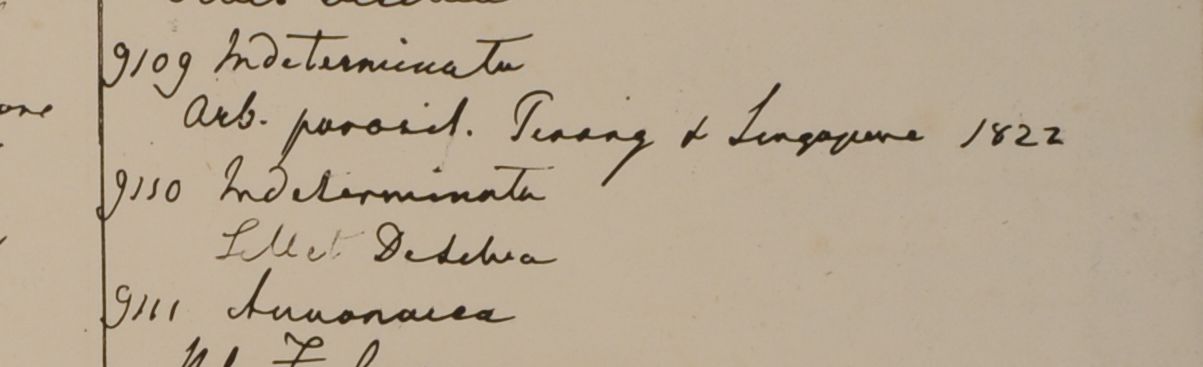 9109 Indeterminata
Arb. parasit. Penang & Singapore 1822
9110 Indeterminata
Sillet
9111 Annonacea